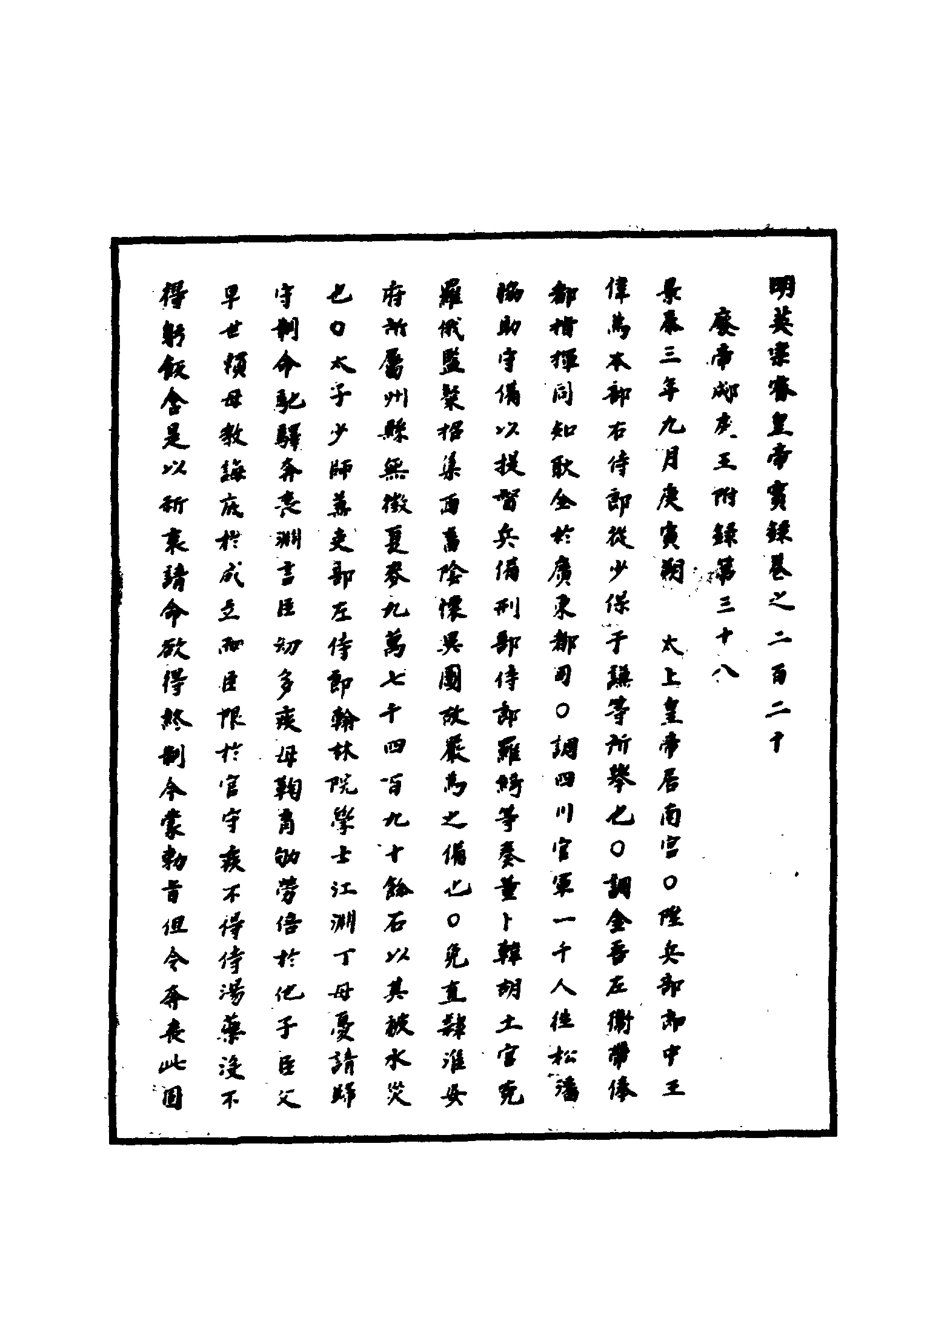 明英宗睿皇帝實錄卷之二百二十
廢帝郕戾王附錄第三十八
景泰三年九月庚寅朔 太上皇帝居南宮○陞兵部郎中王
偉為本部右侍郎從少保于謙等所舉也○調金吾左衛帶俸
都指揮同知耿全於廣東都司○調四川官軍一千人往松潘
協助守備以提督兵備刑部侍郎羅綺等奏董卜韓胡土官克
羅俄監粲招集西畨陰懷異圖故嚴為之備也○免直隸淮安
府所屬州縣無徵夏麥九萬七千四百九十餘石以其被水災
也○太子少師兼吏部左侍郎翰林院學士江淵丁母憂請歸
守制命馳驛奔喪淵言臣幼多疾母鞠育劬勞倍於他子臣父
早世賴母教誨底於成立而臣限於官守疾不得侍湯藥沒不
得躬飯含是以祈哀請命欲得終制今蒙勅旨但令奔喪此固